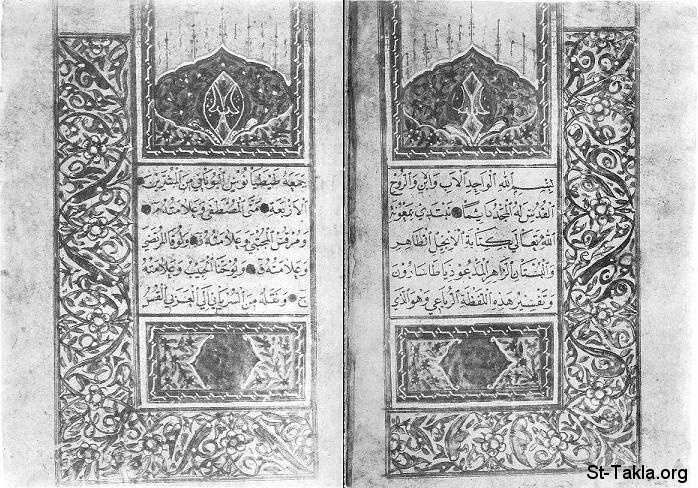 بسم الله الواحد الاب وابن والروح
القدس له المجد دائما نبتدي بمعونة
الله تعالى كتابة الانجيل الطاهر
والبستان الزاهر المدعو ذياطاسارون
وتفسير هذه اللفظة الرباعي وهو الذي
جمعه طيطيانوس اليوناني من المبشرين
الاربعة متى المصطفى وعلامته م
ومرقس المجتبى وعلامته ر ولوقا المرتضى
وعلامته ق ويوحنا الحبيب وعلامته
ح ونقله من السرياني الى العربي القس
St-Takla.org